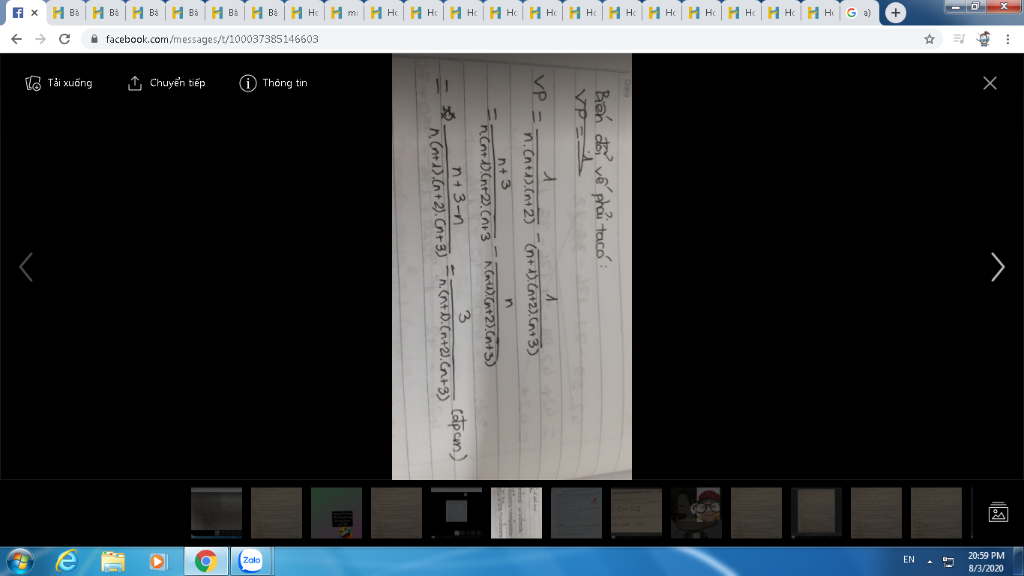 Bà
Bà
Bà
Bà
Bà
Bà
Hc
m
Hc
Hc
Hc
Hc
Hc
Hc
Hc
Hc
Hc
Hc
Hc
Hc
a)
facebook.com/messages/t/100037385146603
Tải xuống
Chuyển tiếp
Thông tin
Biến đổi vế phải ta có:
VP = 1
VP = 1/n.(n+1).(n+2) - 1/(n+1).(n+2).(n+3)
= n+3/n.(n+1).(n+2).(n+3 - n/n.(n+1).(n+2).(n+3)
= n+3-n/n.(n+1).(n+2).(n+3) = 3/n.(n+1).(n+2).(n+3) (đpcm)
Zalo
EN
20:59 PM
8/3/2020